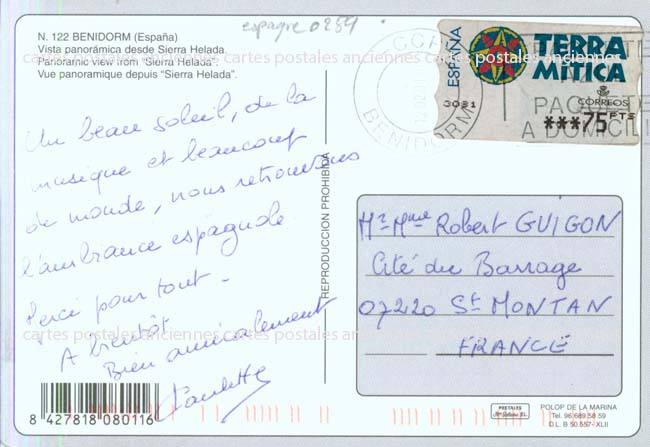 espagne 0289
N. 122 BENIDORM (España)
Vista panorámica desde Sierra Helada.
Panoramic view from "Sierra Helada".
Vue panoramique depuis "Sierra Helada".
cartes postales anciennes cartes postales anciennes cartes postales anciennes
Un beau soleil, de la
musique et beaucoup
de monde, nous retrouvons
l'ambiance espagnole
Merci pour tout -
A bientôt
Bien amicalement
Paulette
cartes postales anciennes cartes postales anciennes cartes postales anciennes
8 427818 080116
REPRODUCCION PROHIBIDA
BENIDORM
ESPAÑA
TERRA
MITICA
CORREOS
***75 PTS
PAQUETE
A DOMICILI
Mr Mme Robert GUIGON
Cité du Barrage
07220 St MONTAN
FRANCE
POSTALES
POLOP DE LA MARINA
Tel. 96 689 58 59
D.L. B 50.557-XLII